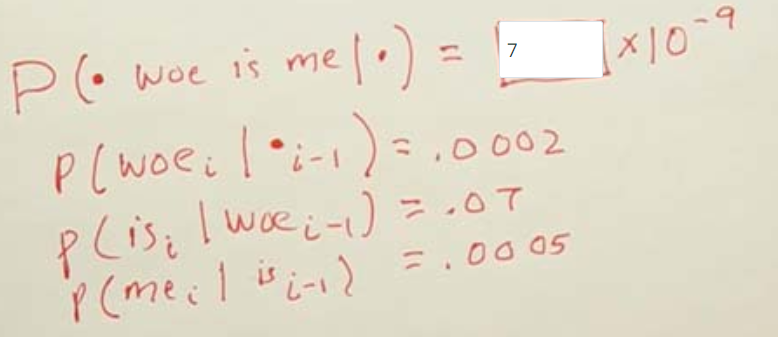 P(• woe is me|•) = 7 ×10⁻⁹
P(woeᵢ | •ᵢ₋₁) = .0002
P(isᵢ | woeᵢ₋₁) = .07
P(meᵢ | isᵢ₋₁) = .0005